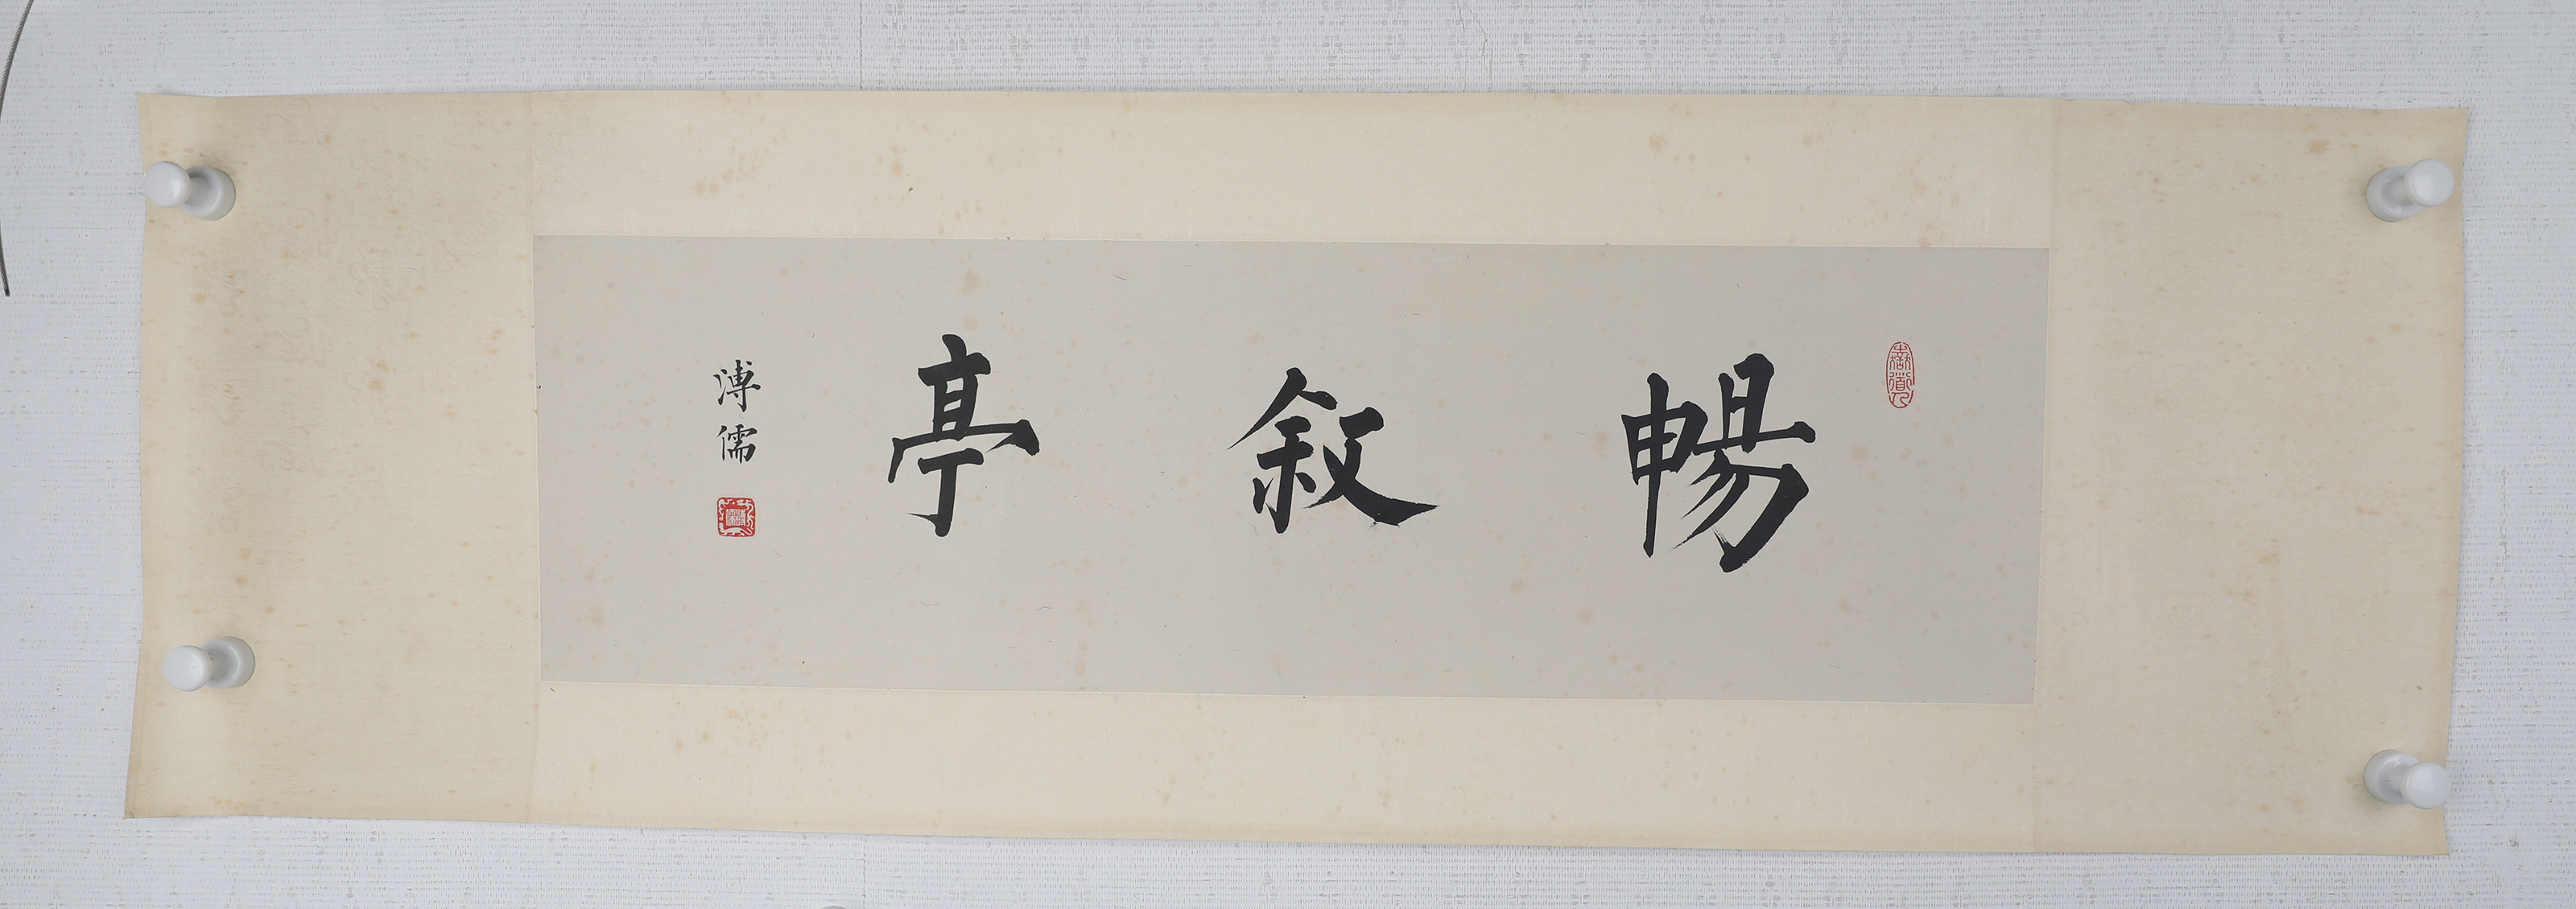 暢叙亭
溥儒